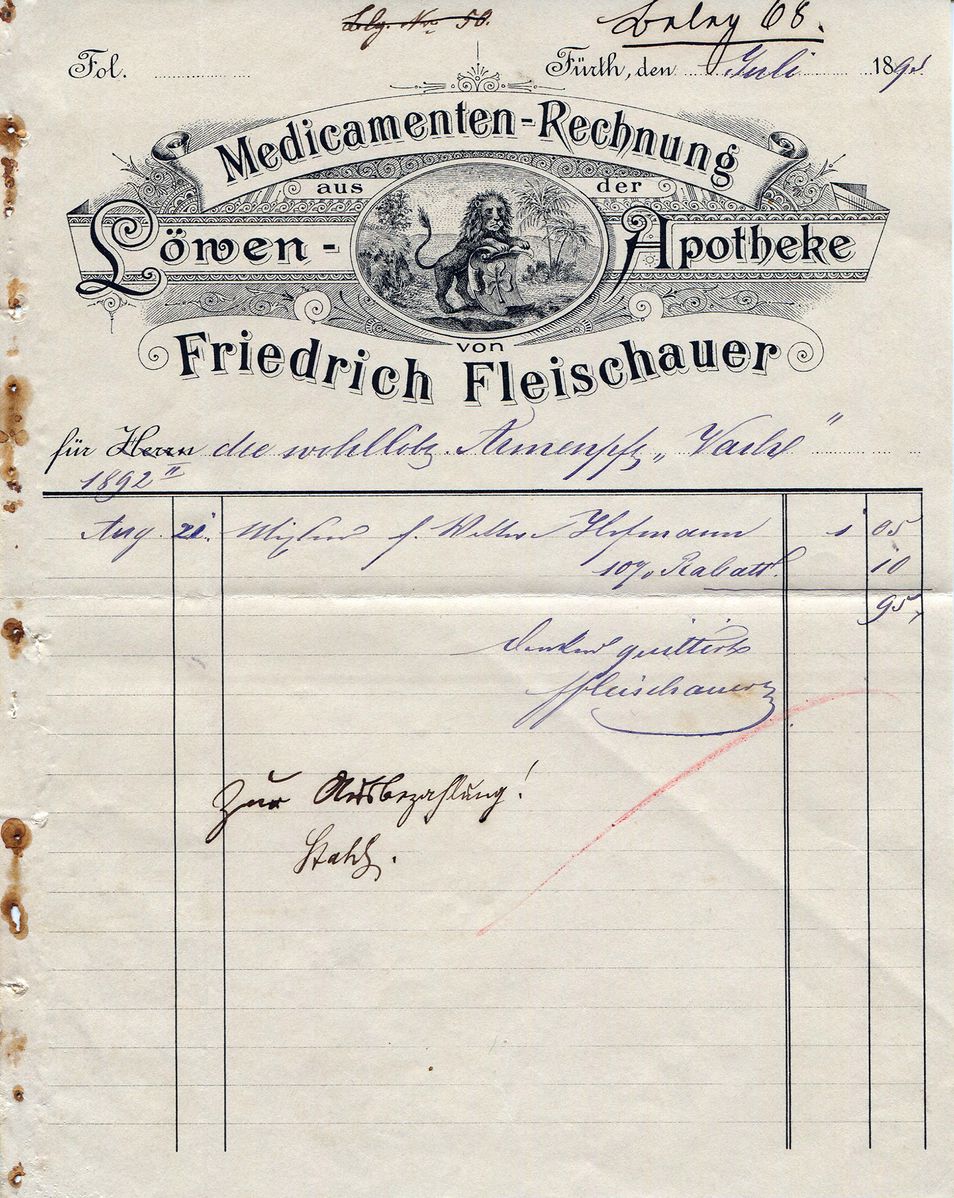 Blg. No 50.
Beleg 68.
Fol.
Fürth, den Juli 189
Medicamenten-Rechnung
aus der
Löwen-Apotheke
von
Friedrich Fleischauer
für Herrn die wohllöbl. Armenpfl. „Vach"
1892
Aug. 21. f. Hofmann 1 05
10% Rabatt. 10
95
dankend quittirt
Fleischauer
Zur Ausbezahlung!
Stahl.